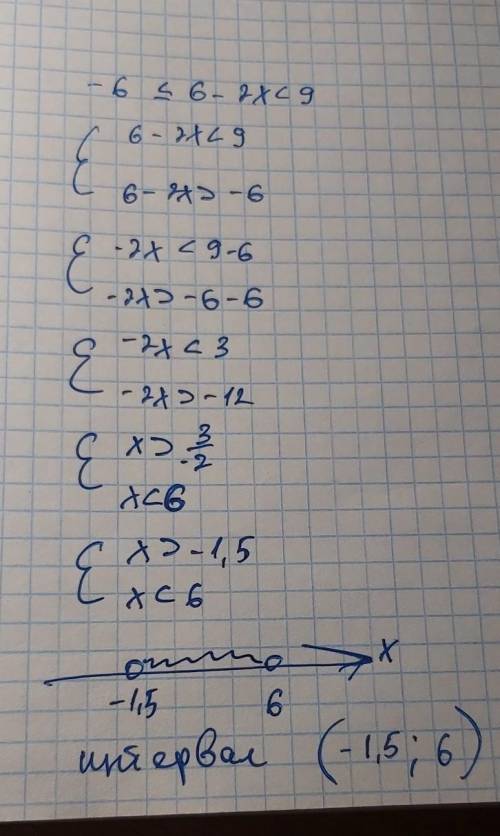 -6 ≤ 6 - 2x < 9
{ 6 - 2x < 9
6 - 2x > -6
{ -2x < 9-6
-2x > -6-6
{ -2x < 3
-2x > -12
{ x > 3/-2
x < 6
{ x > -1,5
x < 6
x
-1,5 6
интервал (-1,5; 6)